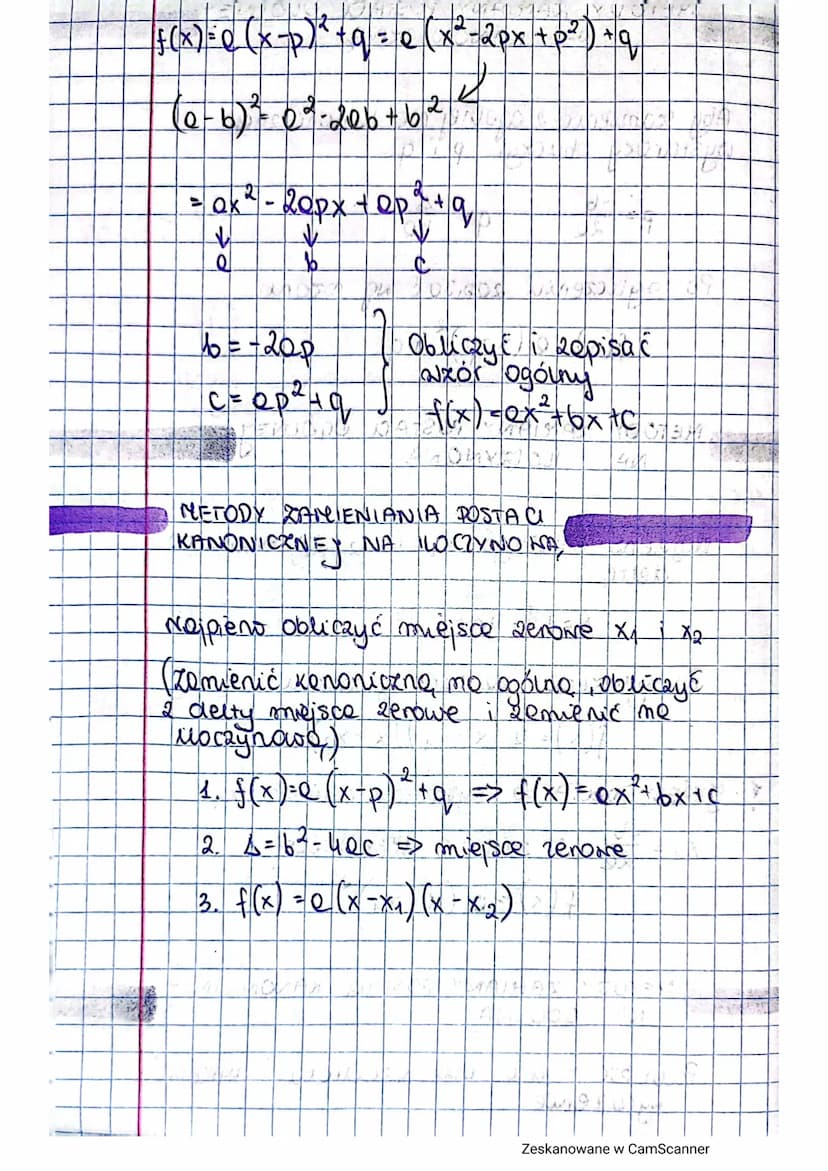 f(x)=a(x-p)²+q = a(x²-2px+p²)+q
(a-b)²= a²-2ab+b²
= ax² - 2apx + ap²+q
↓ ↓ ↓
a b c
b = -2ap } Obliczyć i zapisać
wzór ogólny
c= ap²+q f(x)=ax²+bx+c
METODY ZAMIENIANIA POSTACI
KANONICZNEJ NA ILOCZYNOWĄ
Najpierw obliczyć miejsca zerowe x₁ i x₂
(Zamienić kanoniczną na ogólną, obliczyć
z delty miejsca zerowe i zamienić na
iloczynową)
1. f(x)=a(x-p)²+q => f(x)=ax²+bx+c
2. Δ=b²-4ac => miejsca zerowe
3. f(x)=a(x-x₁)(x-x₂)
Zeskanowane w CamScanner